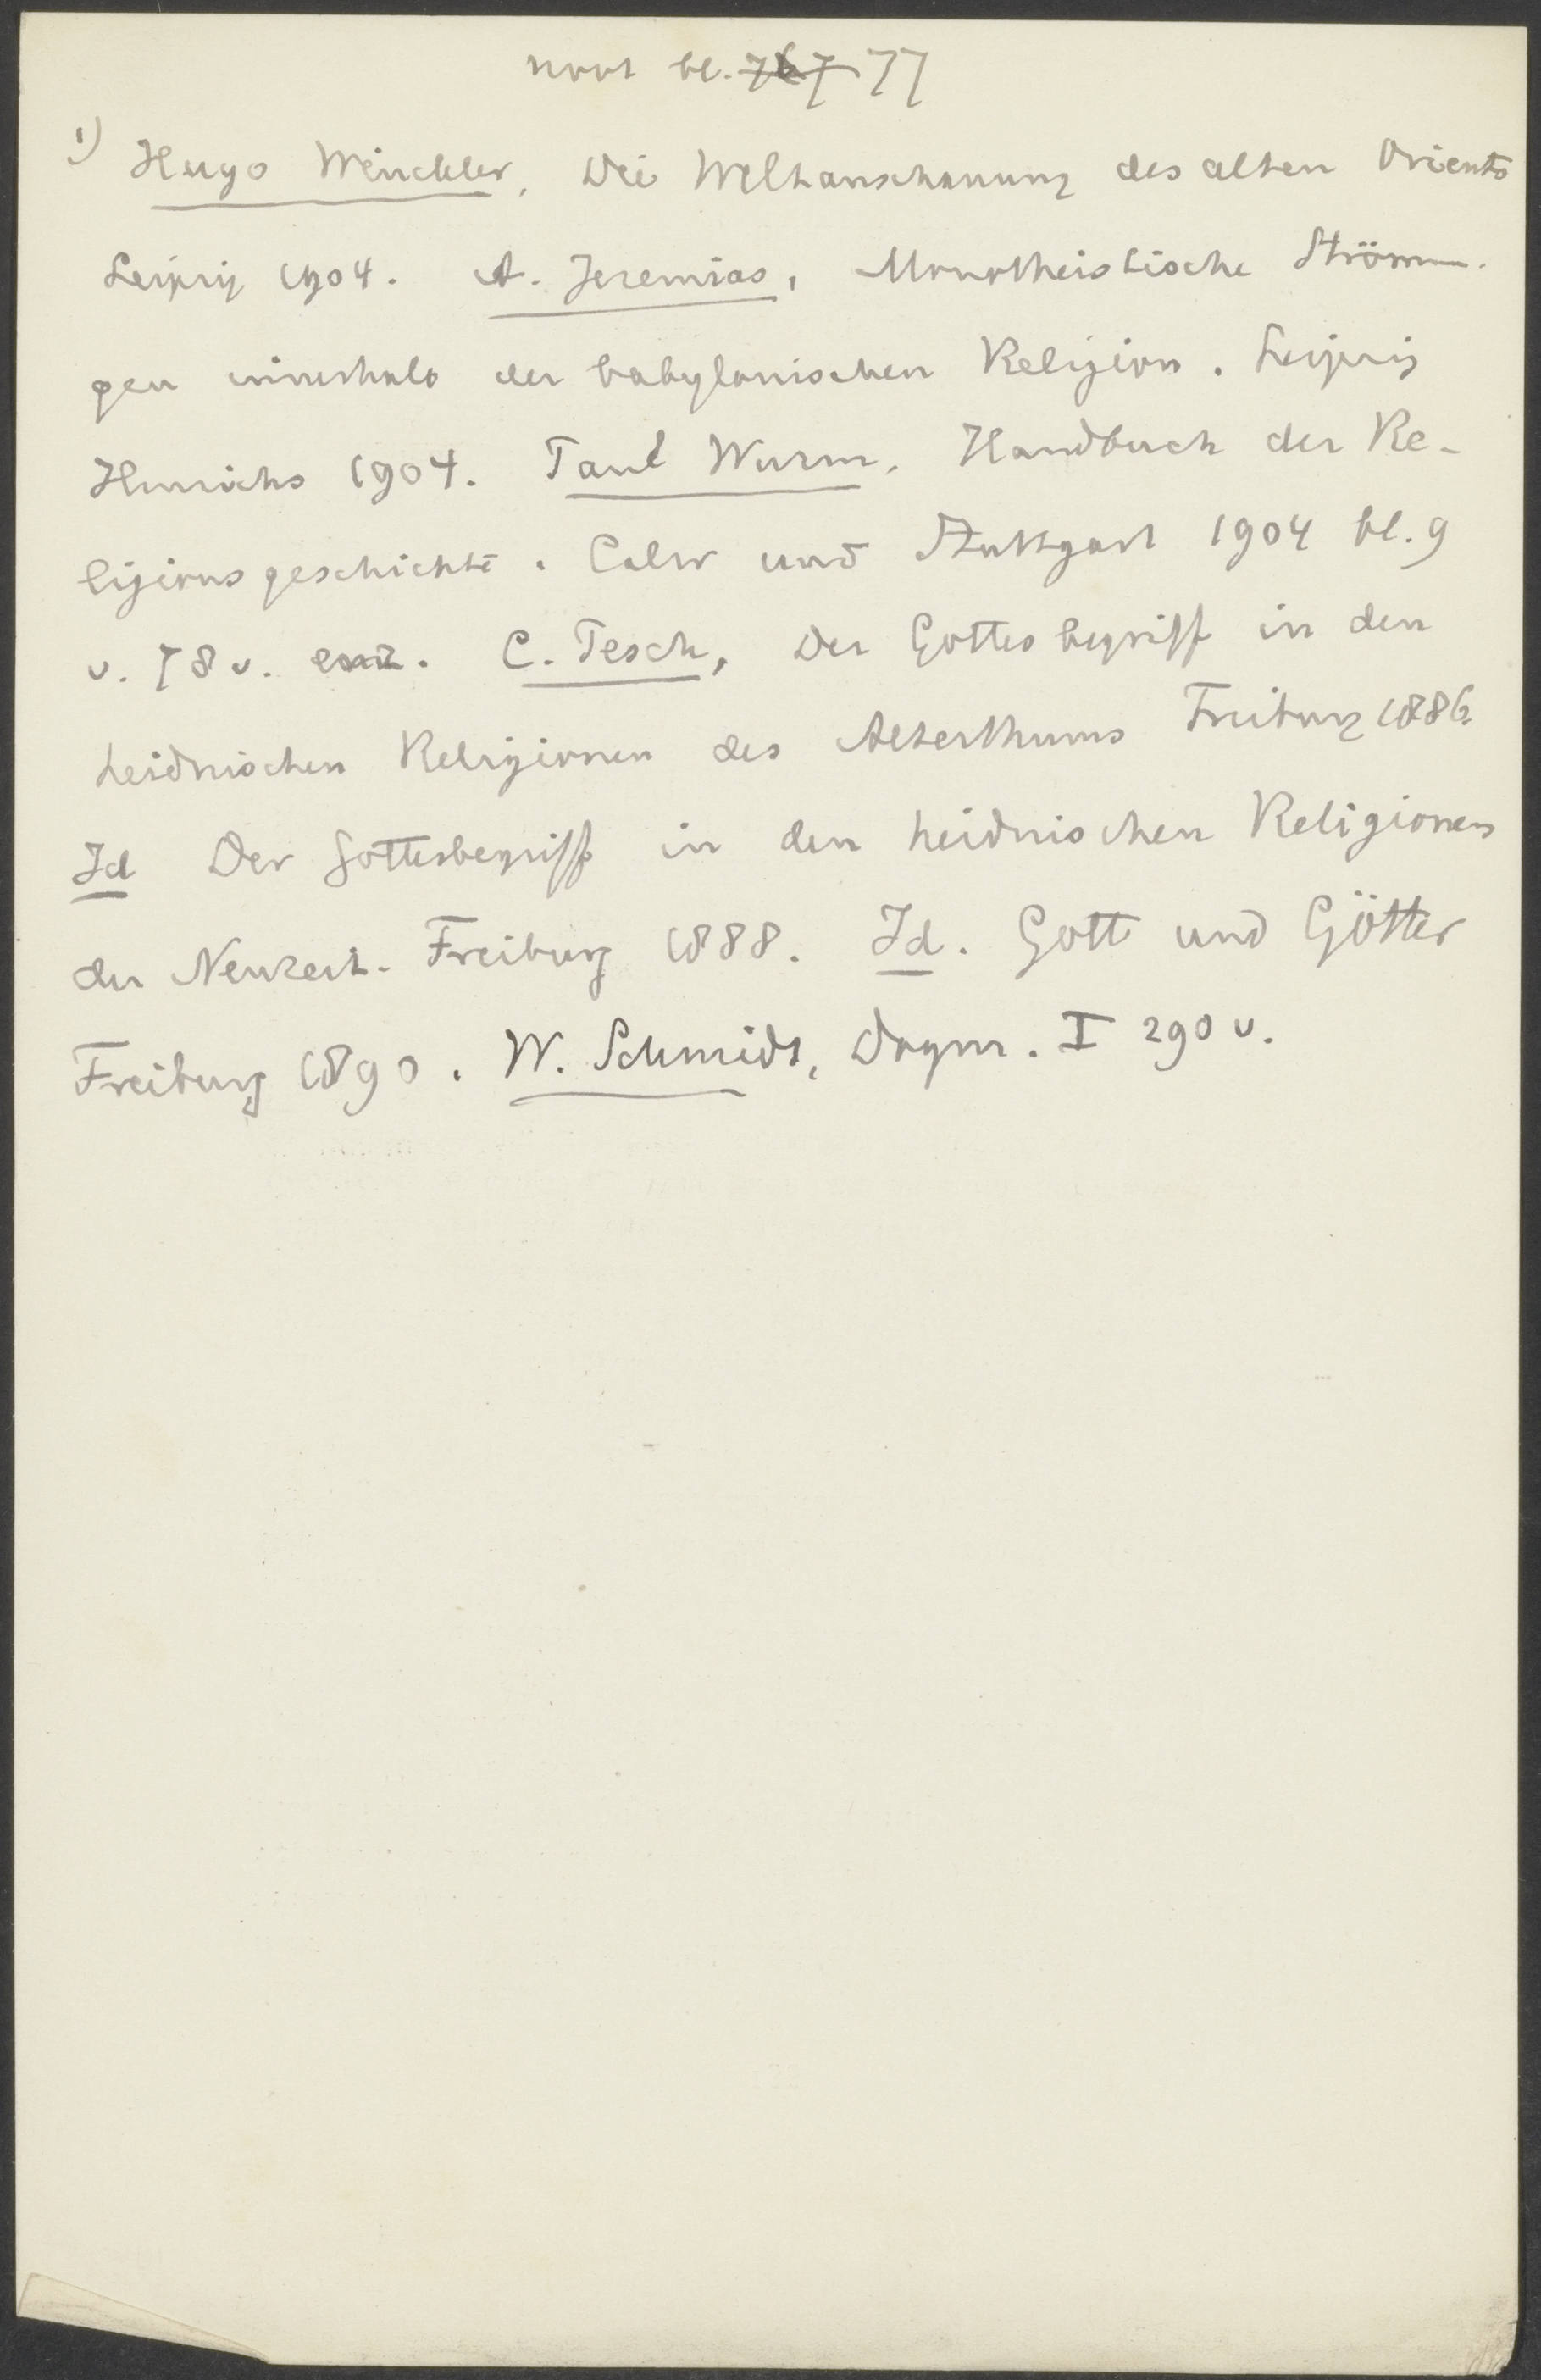 noot bl. 767 77
1) Hugo Winckler, Die Weltanschauung des alten Orients
Leipzig 1904. A. Jeremias, Monotheistische Strömun-
gen innerhalb der babylonischen Religion. Leipzig
Hinrichs 1904. Paul Wurm, Handbuch der Re-
ligionsgeschichte. Calw und Stuttgart 1904 bl. 9
v. 78 v. enz. C. Pesch, Der Gottesbegriff in den
heidnischen Religionen des Alterthums Freiburg 1886.
Id Der Gottesbegriff in den heidnischen Religionen
der Neuzeit. Freiburg 1888. Id. Gott und Götter
Freiburg 1890. W. Schmidt, Dogm. I 290 v.